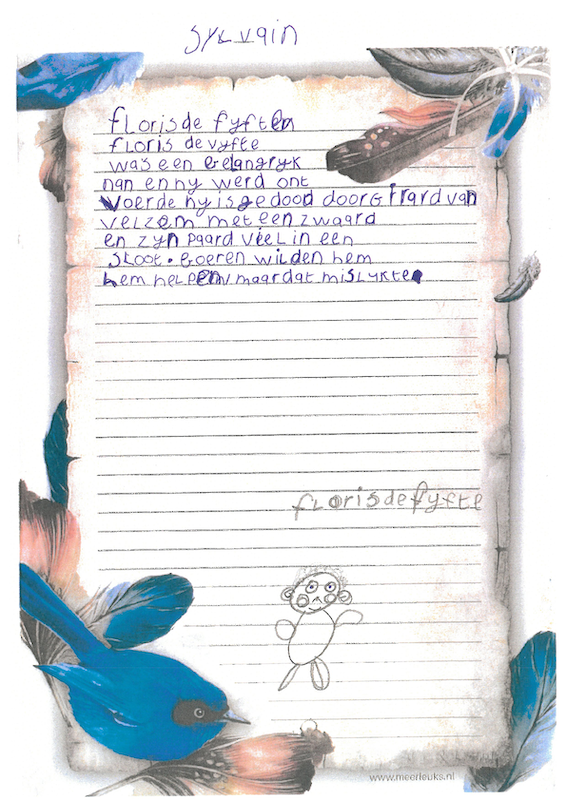 sylvain
floris de fyften
floris de vyfte
was een belangryk
man en hy werd ont
voerde hy is gedood door Girard van
velzem met een zwaard
en zyn paard viel in een
sloot. boeren wilden hem
hem helpen maar dat mislykte
floris de fyfte
www.meerleuks.nl